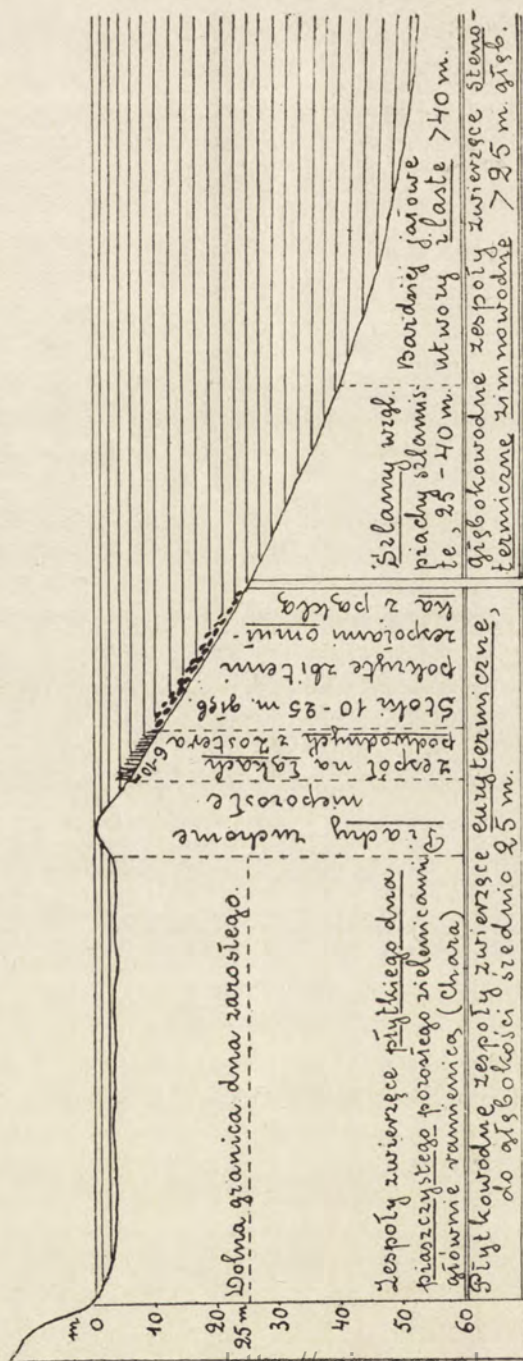 m
0
10
20
25 m
30
40
50
60
Dolna granica dna zarosłego.
Zespoły zwierzęce płytkiego dna
piaszczystego porosłego zielenicami
głównie ramienicą (Chara)
Piachy ruchome
nieporosłe
6-10m
zespół na łąkach
podwodnych z Zostera
Stoki 10-25 m. głęb.
pokryte zbitemi
zespołami omuł-
ka z pąklą
Szlamy wzgl.
piachy szlamis-
te, 25-40 m.
Bardziej jałowe
utwory ilaste >40 m.
Płytkowodne zespoły zwierzęce eurytermiczne,
do głębokości średnio 25 m.
głębokowodne zespoły zwierzęce steno-
termiczne zimnowodne > 25 m. głęb.